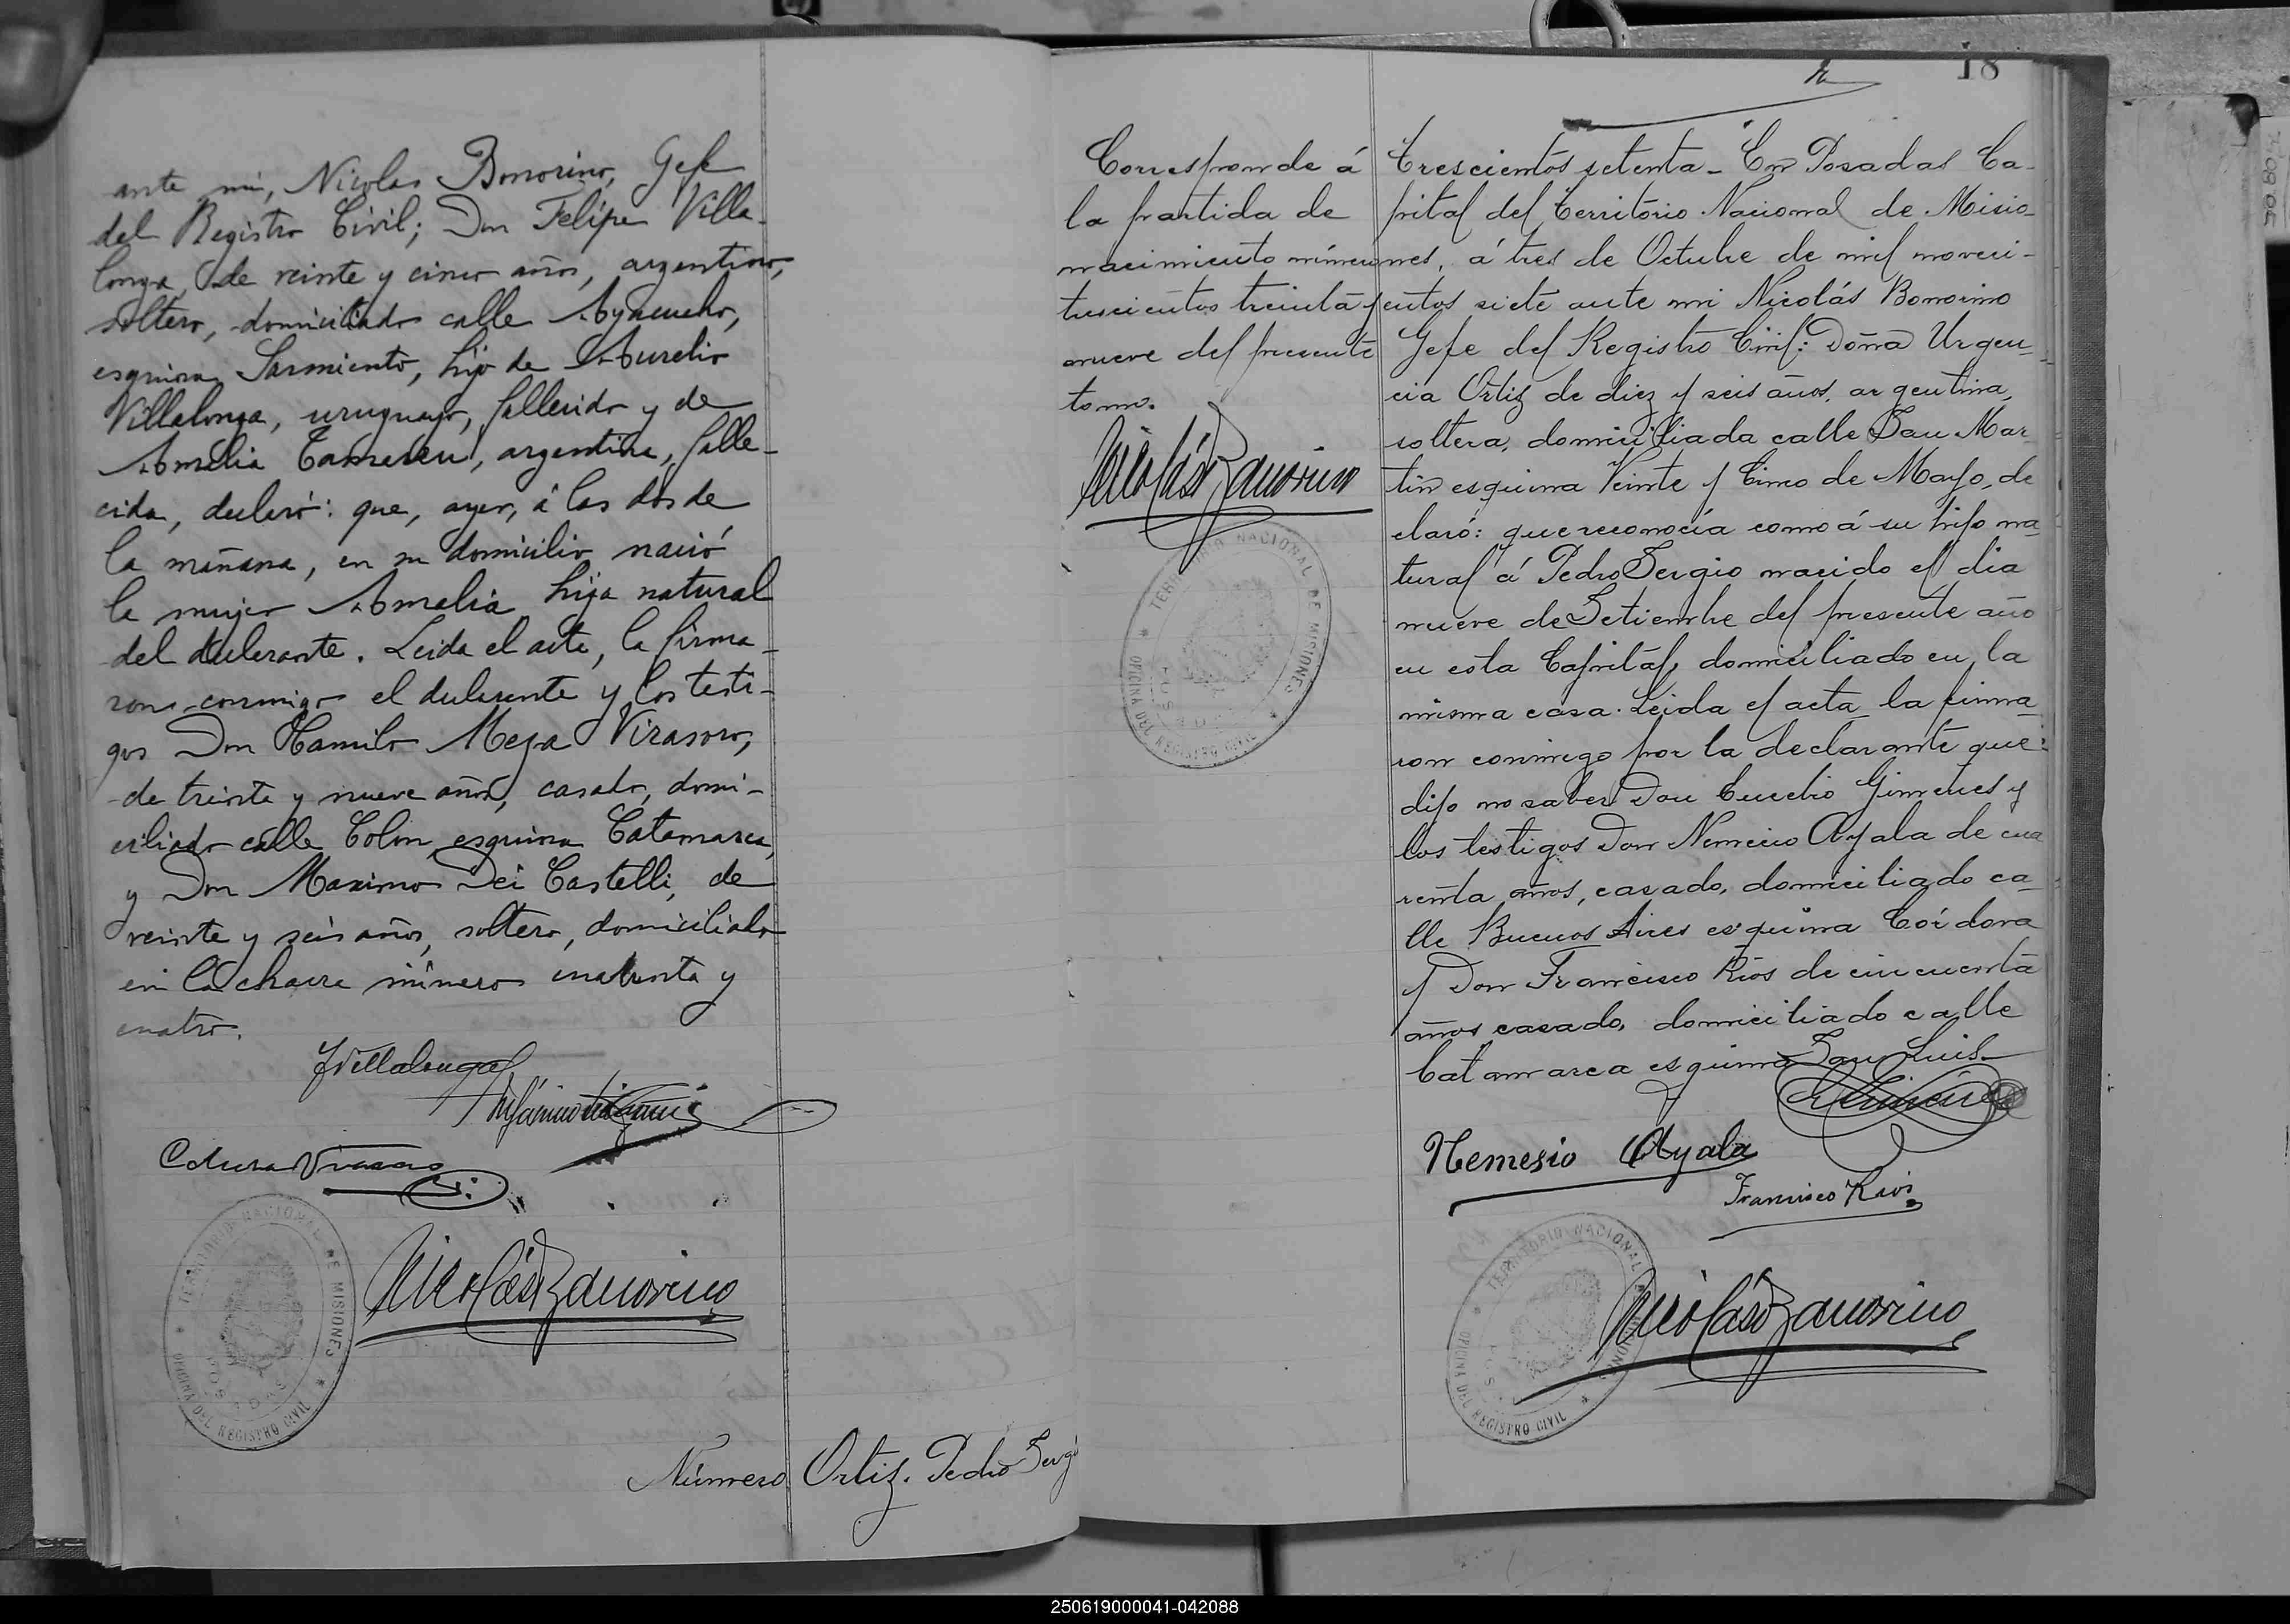 ante mi, Nicolas Bonorino, Gefe
del Registro Civil; Don Felipe Villa-
longa, de veinte y cinco años, argentino,
soltero, domiciliado calle Ayacucho,
esquina Sarmiento, hijo de Aurelio
Villalonga, uruguayo, fallecido y de
Amelia, argentina, falle-
cida, declaró: que, ayer, á las dos de
la mañana, en su domicilio nació
la mujer Amelia hija natural
del declarante. Leida el acta, la firma-
ron conmigo el declarante y los testi-
gos Don Camilo Meza Virasoro,
de treinta y nueve años, casado, domi-
ciliado calle Colon esquina Catamarca,
y Don Maximo Dei Castelli, de
veinte y seis años, soltero, domiciliado
en la chacra número cuarenta y
cuatro.
FVillalonga
Virasoro
TERRITORIO NACIONAL DE MISIONES
POSADAS
OFICINA DEL REGISTRO CIVIL
Nicolás Bonorino
Número Ortiz. Pedro Sergio
18
Corresponde á
la partida de
nacimiento número
trescientos treinta y
nueve del presente
tomo.
Nicolás Bonorino
TERRITORIO NACIONAL DE MISIONES
POSADAS
OFICINA DEL REGISTRO CIVIL
Trescientos setenta - En Posadas Ca-
pital del Territorio Nacional de Misio-
nes, á tres de Octubre de mil noveci-
entos siete ante mi Nicolás Bonorino
Gefe del Registro Civil: Doña Urgen-
cia Ortiz de diez y seis años, argentina,
soltera, domiciliada calle San Mar-
tin esquina Veinte y Cinco de Mayo, de
claró: que reconocía como á su hijo na
tural á Pedro Sergio nacido el dia
nueve de Setiembre del presente año
en esta Capital, domiciliado en la
misma casa. Leida el acta la firma-
ron conmigo por la declarante que
dijo no saber Don Eusebio Gimenes y
los testigos Don Nemecio Ayala de cua
renta años, casado, domiciliado ca-
lle Buenos Aires esquina Córdova
y Don Francisco Rios de cincuenta
años casado, domiciliado calle
Catamarca esquina San Luis
Nemesio Ayala
Francisco Rios
TERRITORIO NACIONAL DE MISIONES
POSADAS
OFICINA DEL REGISTRO CIVIL
Nicolás Bonorino
250619000041-042088